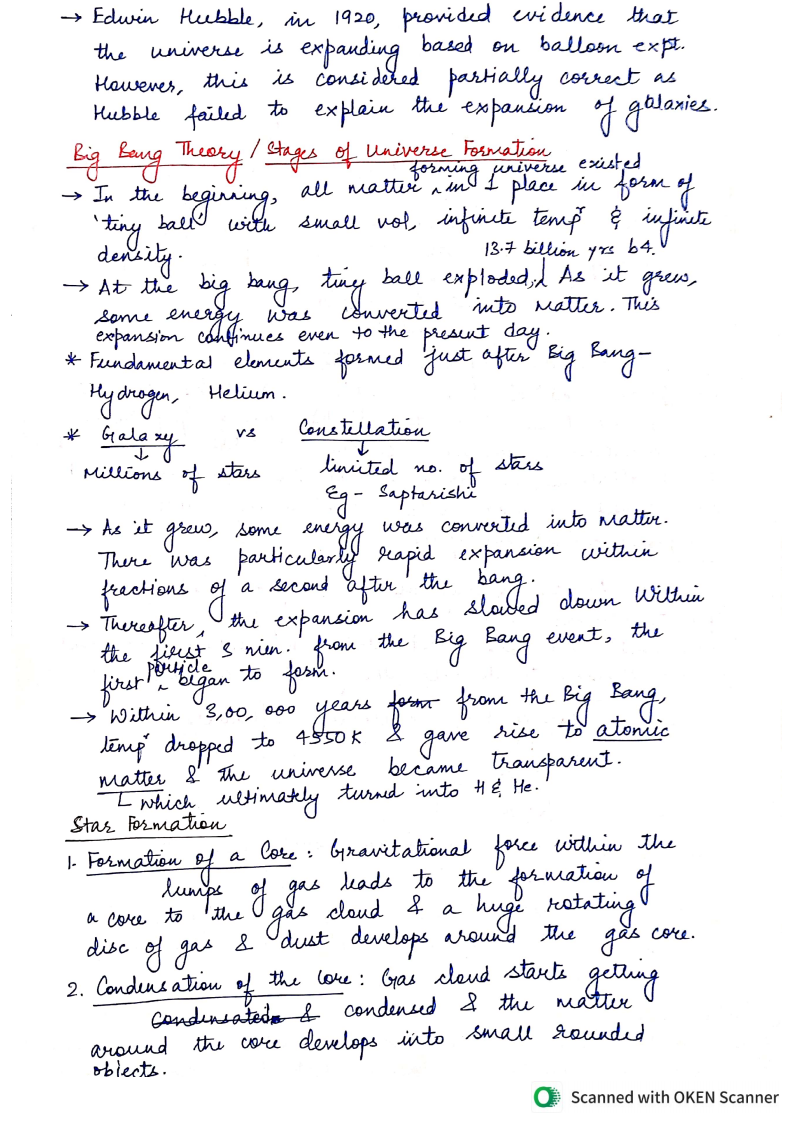 → Edwin Hubble, in 1920, provided evidence that
the universe is expanding based on balloon expt.
However, this is considered partially correct as
Hubble failed to explain the expansion of galaxies.
Big Bang Theory / Stages of Universe Formation
forming universe existed
→ In the beginning, all matter ^ in 1 place in form of
'tiny ball' with small vol, infinite tempr & infinite
density.
13.7 billion yrs b4.
→ At the big bang, tiny ball exploded, ⅄ As it grew,
some energy was converted into matter. This
expansion continues even to the present day.
* Fundamental elements formed just after Big Bang-
Hydrogen, Helium.
* Galaxy vs Constellation
↓ ↓
Millions of stars limited no. of stars
Eg - Saptarishi
→ As it grew, some energy was converted into matter.
There was particularly rapid expansion within
fractions of a second after the bang.
→ Thereafter, the expansion has slowed down Within
the first 3 min. from the Big Bang event, the
particle
first ^ began to form.
→ Within 3,00,000 years form from the Big Bang,
tempr dropped to 4550K & gave rise to atomic
matter & the universe became transparent.
└ which ultimately turned into H & He.
Star Formation
1. Formation of a Core : Gravitational force within the
lumps of gas leads to the formation of
a core to the gas cloud & a huge rotating
disc of gas & dust develops around the gas core.
2. Condensation of the core : Gas cloud starts getting
Condensated & condensed & the matter
around the core develops into small rounded
objects.
Scanned with OKEN Scanner